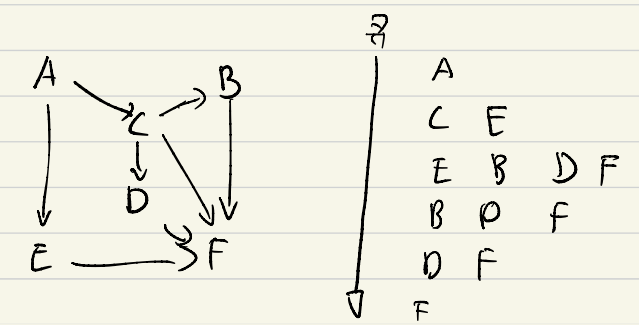 A
B
C
D
E
F
큐
A
C E
E B D F
B D F
D F
F